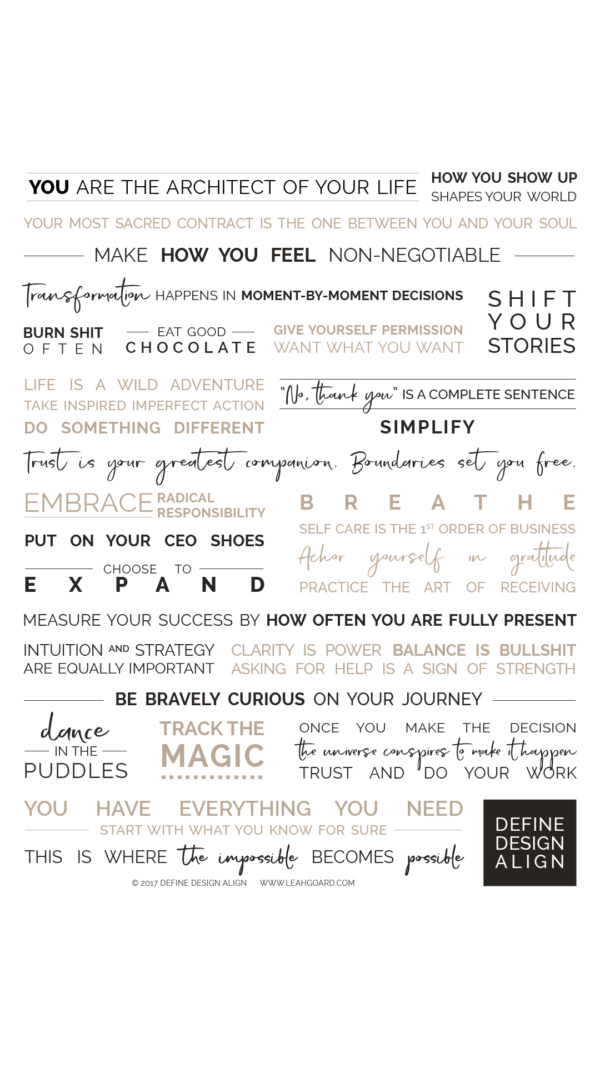 YOU ARE THE ARCHITECT OF YOUR LIFE
HOW YOU SHOW UP
SHAPES YOUR WORLD
YOUR MOST SACRED CONTRACT IS THE ONE BETWEEN YOU AND YOUR SOUL
MAKE HOW YOU FEEL NON-NEGOTIABLE
Transformation HAPPENS IN MOMENT-BY-MOMENT DECISIONS
SHIFT
YOUR
STORIES
BURN SHIT
OFTEN
EAT GOOD
CHOCOLATE
GIVE YOURSELF PERMISSION
WANT WHAT YOU WANT
LIFE IS A WILD ADVENTURE
TAKE INSPIRED IMPERFECT ACTION
DO SOMETHING DIFFERENT
"No, thank you" IS A COMPLETE SENTENCE
SIMPLIFY
Trust is your greatest companion. Boundaries set you free.
EMBRACE RADICAL
RESPONSIBILITY
PUT ON YOUR CEO SHOES
CHOOSE TO
EXPAND
BREATHE
SELF CARE IS THE 1ST ORDER OF BUSINESS
Achor yourself in gratitude
PRACTICE THE ART OF RECEIVING
MEASURE YOUR SUCCESS BY HOW OFTEN YOU ARE FULLY PRESENT
INTUITION AND STRATEGY
ARE EQUALLY IMPORTANT
CLARITY IS POWER BALANCE IS BULLSHIT
ASKING FOR HELP IS A SIGN OF STRENGTH
BE BRAVELY CURIOUS ON YOUR JOURNEY
dance
IN THE
PUDDLES
TRACK THE
MAGIC
ONCE YOU MAKE THE DECISION
the universe conspires to make it happen
TRUST AND DO YOUR WORK
YOU HAVE EVERYTHING YOU NEED
START WITH WHAT YOU KNOW FOR SURE
THIS IS WHERE the impossible BECOMES possible
DEFINE
DESIGN
ALIGN
© 2017 DEFINE DESIGN ALIGN WWW.LEAHGOARD.COM